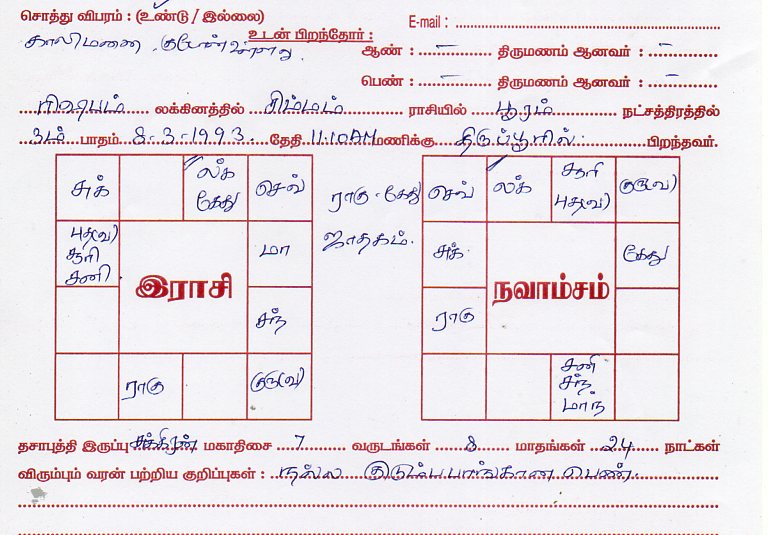 சொத்து விபரம் : (உண்டு / இல்லை)
E-mail :
காலிமனை
உடன் பிறந்தோர் :
ஆண் : – திருமணம் ஆனவர் : –
பெண் : – திருமணம் ஆனவர் : –
ரிஷபம் லக்கினத்தில் சிம்மம் ராசியில் பூரம் நட்சத்திரத்தில்
3ம் பாதம் 8-3-1993 தேதி 11.10AM மணிக்கு திருப்பூரில் பிறந்தவர்.
சுக் லக் கேது செவ்
புத(வ) சூரி சனி மா
இராசி
சந்
ராகு குரு(வ)
ராகு - கேது
ஜாதகம்.
செவ் லக் சூரி புத(வ) குரு(வ)
சுக் கேது
நவாம்சம்
ராகு
சனி சந் மாந்
தசாபுத்தி இருப்பு சுக்கிரன் மகாதிசை 7 வருடங்கள் 8 மாதங்கள் 24 நாட்கள்
விரும்பும் வரன் பற்றிய குறிப்புகள் : நல்ல குடும்ப பாங்கான பெண்.